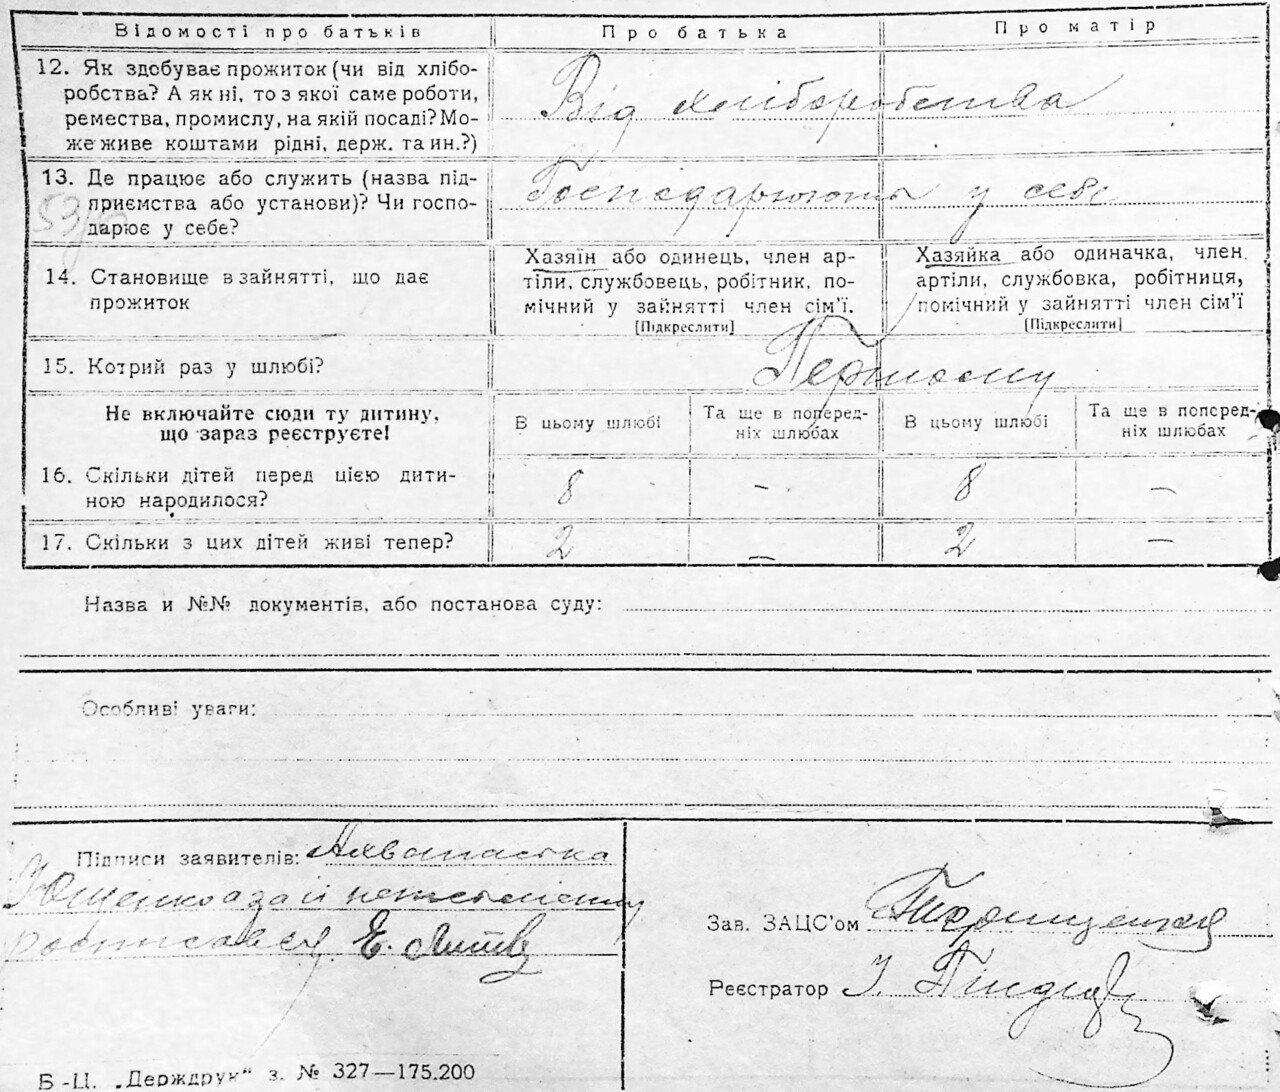 Відомості про батьків Про батька Про матір
12. Як здобуває прожиток (чи від хлібо-
робства? А як ні, то з якої саме роботи,
ремества, промислу, на якій посаді? Мо-
же живе коштами рідні, держ. та ин.?)
Від хліборобства
13. Де працює або служить (назва під-
приємства або установи)? Чи госпо-
дарює у себе?
Господарюють у себе
14. Становище в зайнятті, що дає
прожиток
Хазяїн або одинець, член ар-
тілі, службовець, робітник, по-
мічний у зайнятті член сім'ї.
[Підкреслити]
Хазяйка або одиначка, член
артілі, службовка, робітниця,
помічний у зайнятті член сім'ї
[Підкреслити]
15. Котрий раз у шлюбі?
Первому
Не включайте сюди ту дитину,
що зараз реєструєте!
В цьому шлюбі
Та ще в поперед-
ніх шлюбах
В цьому шлюбі
Та ще в поперед-
ніх шлюбах
16. Скільки дітей перед цією дити-
ною народилося?
8 – 8 –
17. Скільки з цих дітей живі тепер? 2 – 2 –
Назва и №№ документів, або постанова суду:
Особливі уваги:
Підписи заявителів:
Ющенко а за її неписьменну
росписався Е. Литв
Зав. ЗАЦС'ом
Реєстратор І.
Б-Ц. „Держдрук" з. № 327—175.200